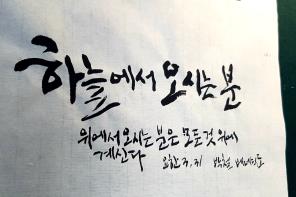 하늘에서 오시는 분
위에서 오시는 분은 모든 것 위에
계신다
요한 3, 31 박철 베네딕도